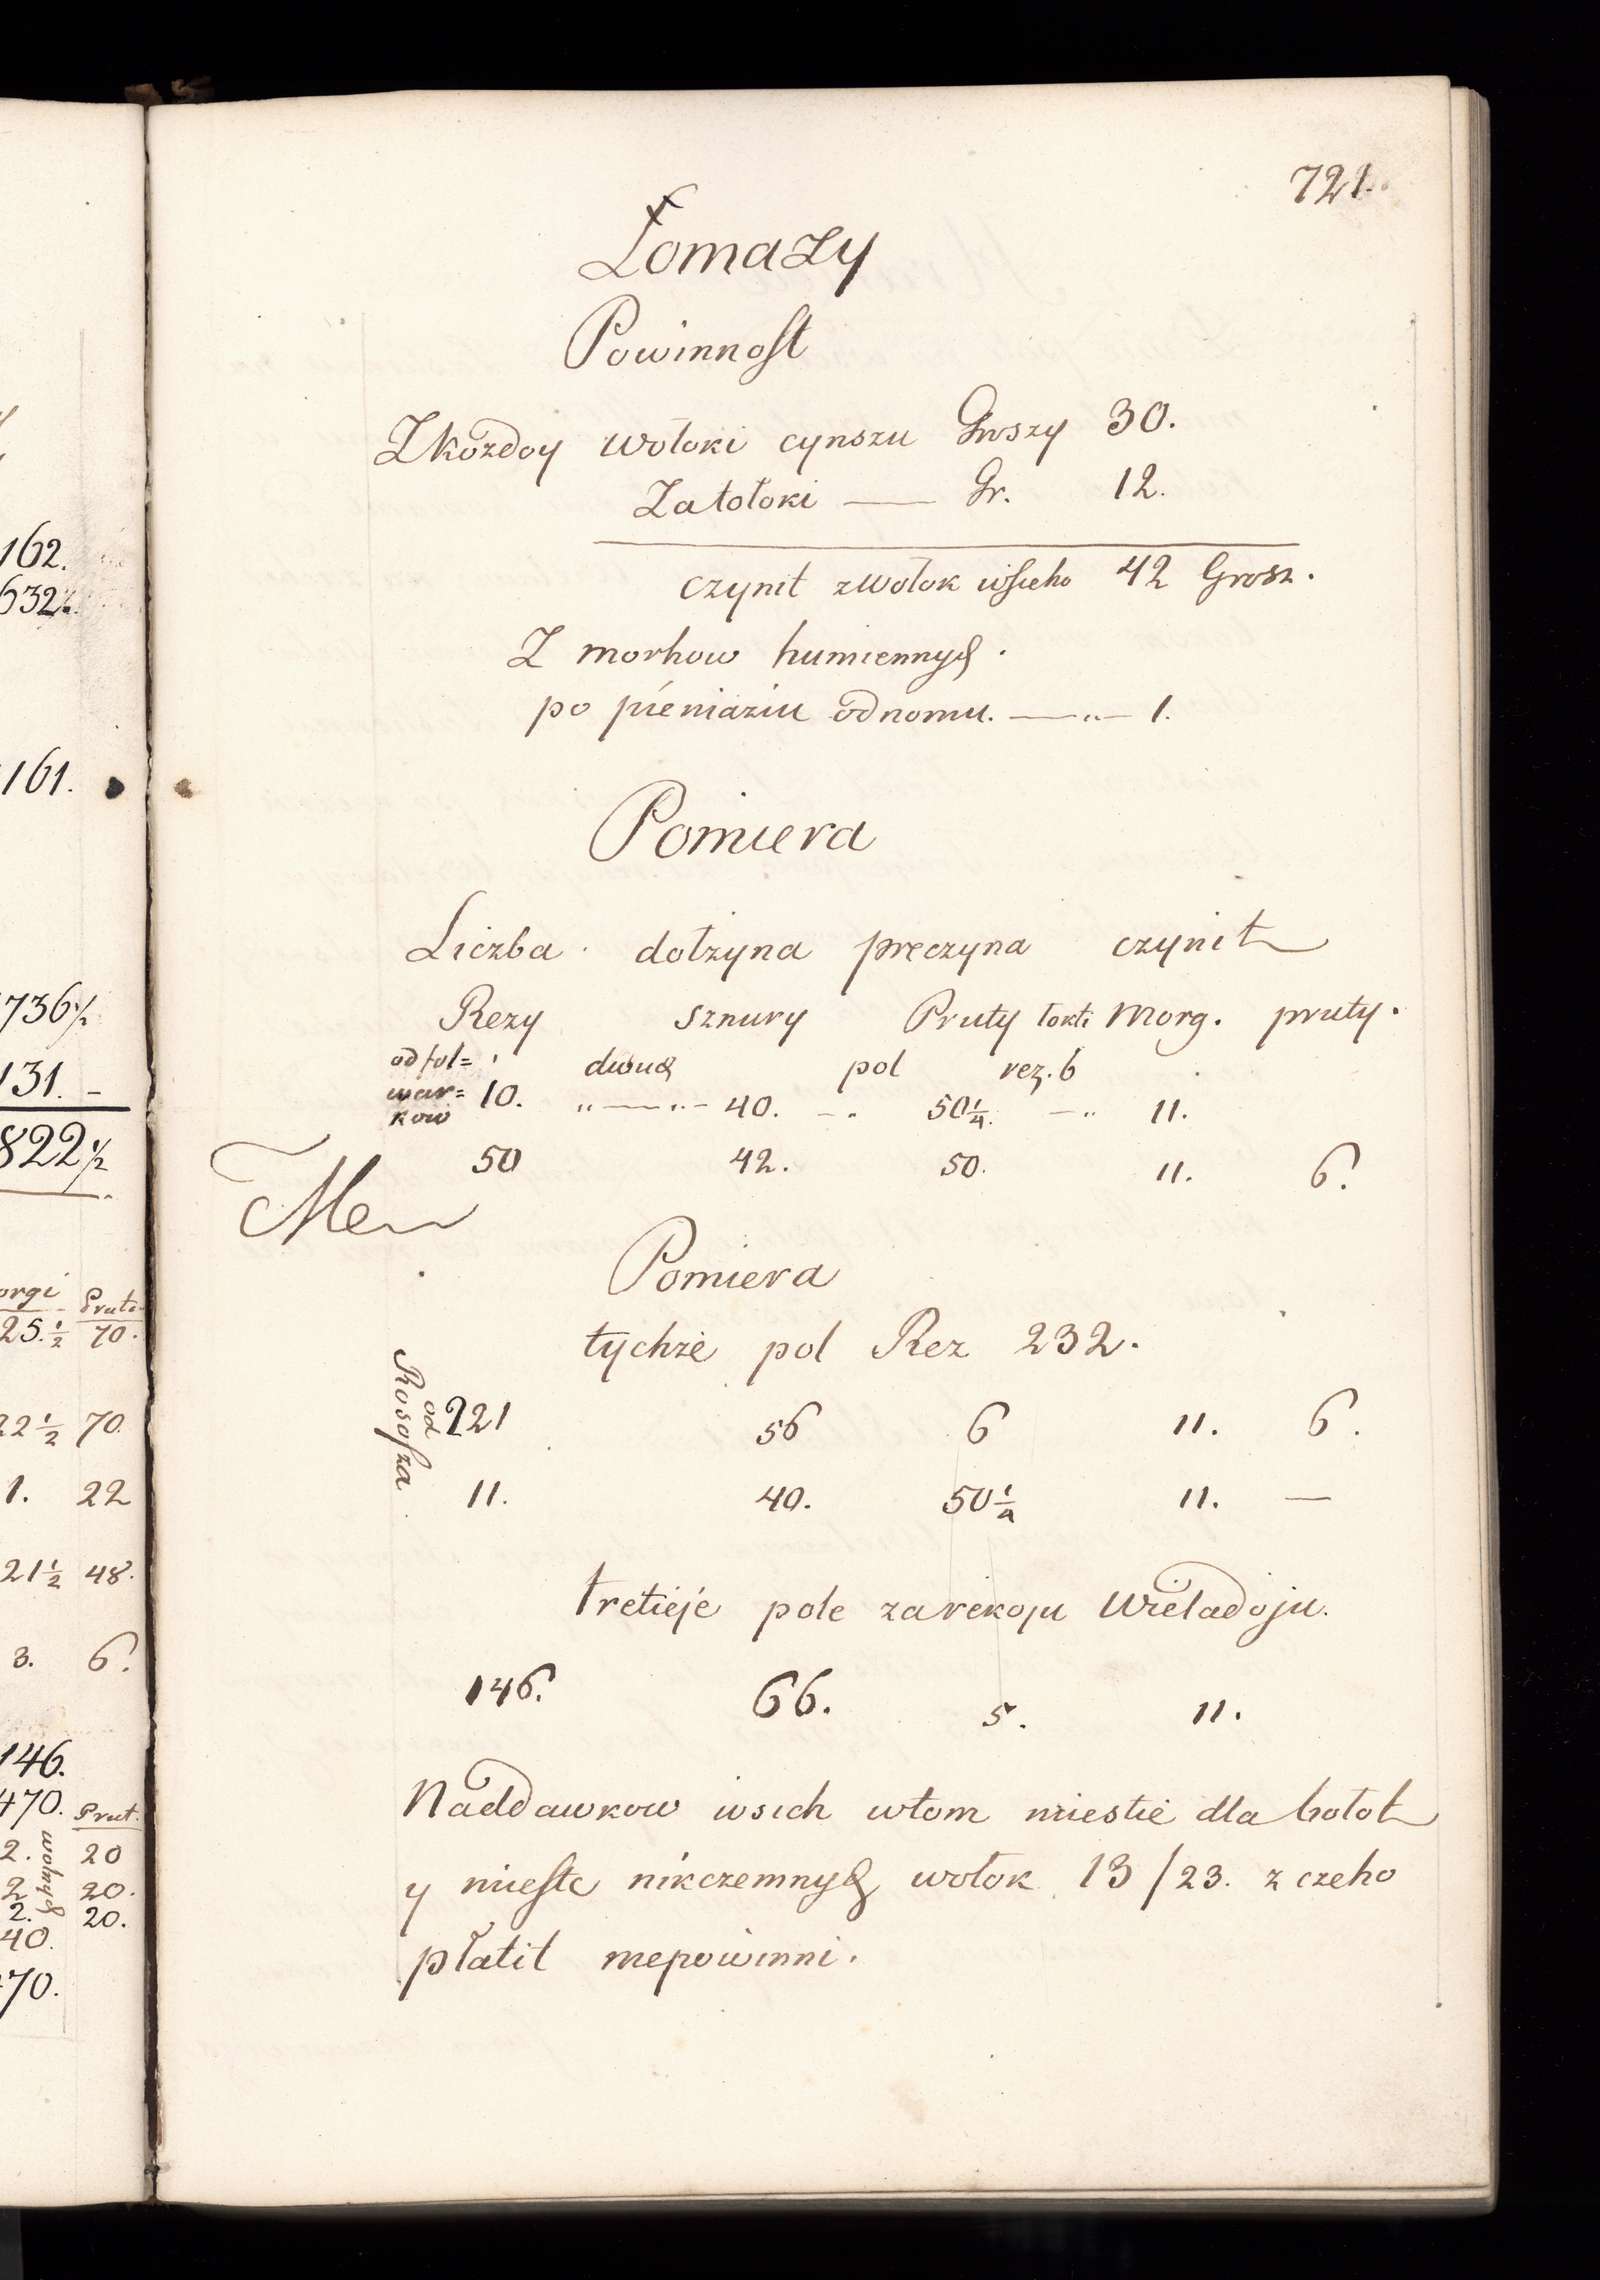 162.
632½.
161.
736½
131. -
822½
orgi Prute
25.½ 70.
22½ 70.
1. 22
21½ 48.
3. 6.
146.
470. Prut.
2. 20
2 wolnych 20.
2. 20.
40.
70.
721.
Łomazy
Powinnost
Z kozdoy wołoki cynszu Groszy 30.
Za tołoki — Gr. 12.
czynit z wołok wsieho 42 Grosz.
Z morhow humiennych.
po pieniaziu odnomu. — „ — 1.
Pomiera
Liczba dołzyna preczyna czynit
Rezy sznury Pruty łokti Morg. pruty.
od fol= dwuch pol rez. 6
war= 10. „ — „ — 40. — „ 50¼. — „ 11.
kow
50 42. 50. 11. 6.
Pomiera
tychze pol Rez 232.
od Rososza
221 56 6 11. 6.
11. 40. 50¼ 11. —
tretieje pole za rekoju Wieladoju.
146. 66. 5. 11.
Naddawkow wsich w tom miestie dla bołot
y miestc nikczemnych wołok 13/23. z czeho
płatit nepowinni.